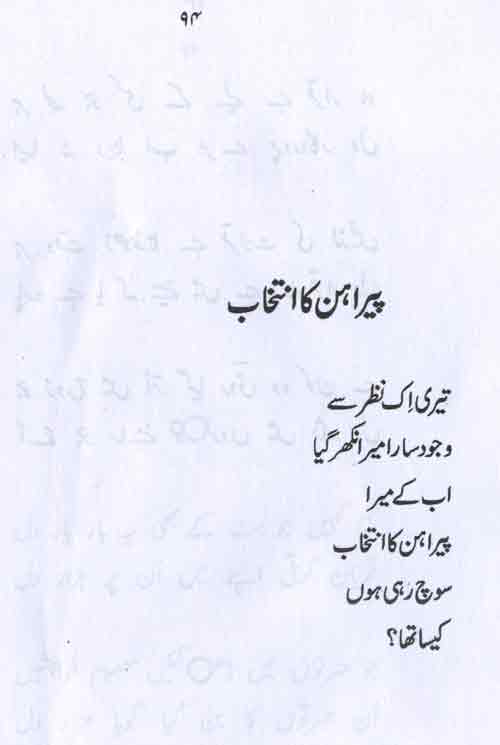 ۹۴
پیراہن کا انتخاب
تیری اِک نظر سے
وجود سارا میرا نکھر گیا
اب کے میرا
پیراہن کا انتخاب
سوچ رَہی ہوں
کیسا تھا؟